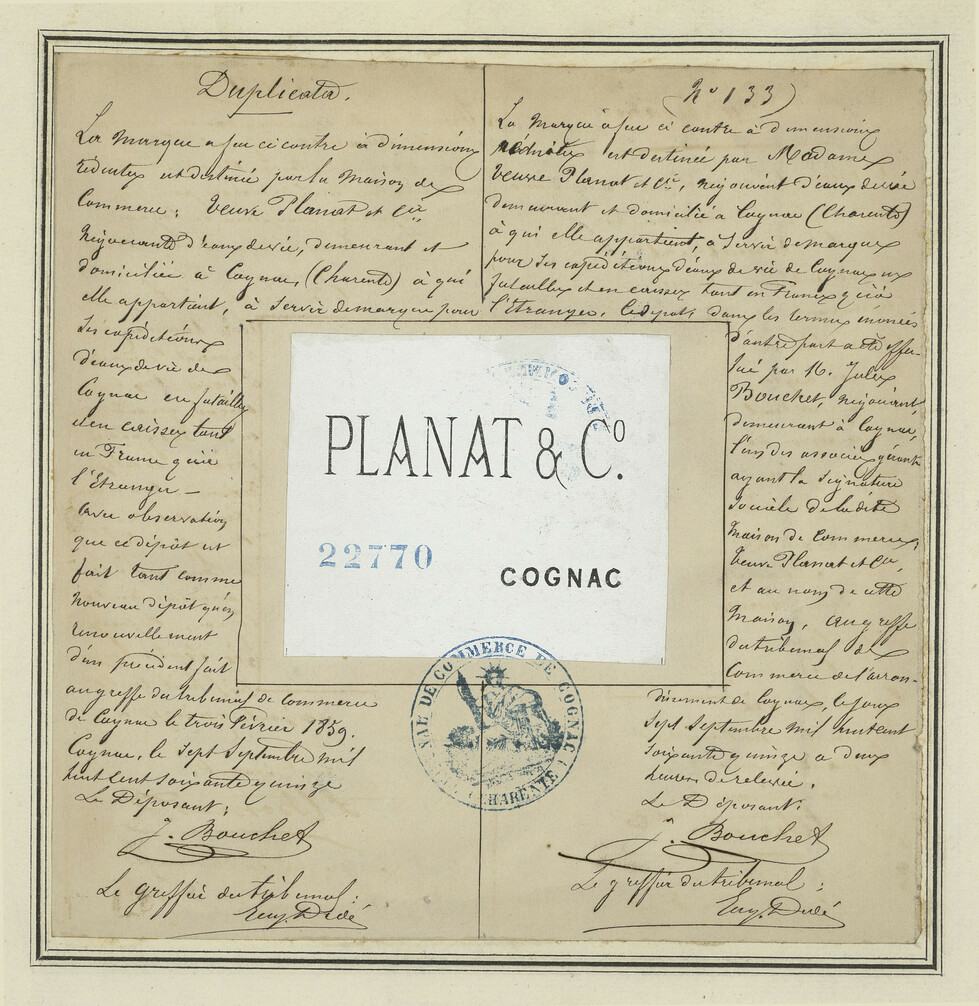 Duplicata.
La Marque a feu ci contre à dimensions
réduites est destinée par la Maison de
Commerce, Veuve Planat et Cie
Négociants d'eaux de vie, demeurant et
domiciliée à Cognac, (Charente) à qui
elle appartient, à servir de marque pour
ses expéditions
d'eaux de vie de
Cognac en futailles
et en caisses tant
en France qu'à
l'Etranger —
avec observation
que ce dépôt est
fait tant comme
nouveau dépôt qu'en
renouvellement
d'un précédent fait
au greffe du tribunal de Commerce
de Cognac le trois février 1859.
Cognac, le Sept Septembre mil
huit cent soixante quinze
Le Déposant:
J. Bouchet
Le greffier du tribunal:
Eug. Didé
(No 133)
La Marque à feu ci contre à dimensions
réduites est destinée par Madame
Veuve Planat et Cie, négociant d'eaux de vie
demeurant et domicilié à Cognac (Charente)
à qui elle appartient, à servir de marque
pour ses expéditions d'eaux de vie de Cognac en
futailles et en caisses tant en France qu'à
l'Etranger, le dépôt, dans les termes énoncés
d'autre part a été effec-
tué par M. Jules
Bouchet, négociant
demeurant à Cognac,
l'un des associés gérants
ayant la signature
sociale de la dite
Maison de Commerce,
Veuve Planat et Cie,
et au nom de cette
Maison, au greffe
du tribunal de
Commerce de l'arron-
dissement de Cognac, le jour
Sept Septembre mil huit cent
soixante quinze à deux
heures de relevée.
Le Déposant.
J. Bouchet
Le greffier du tribunal:
Eug. Didé
PLANAT & Co.
22770
COGNAC
DE COMMERCE DE COGNAC
CHARENTE